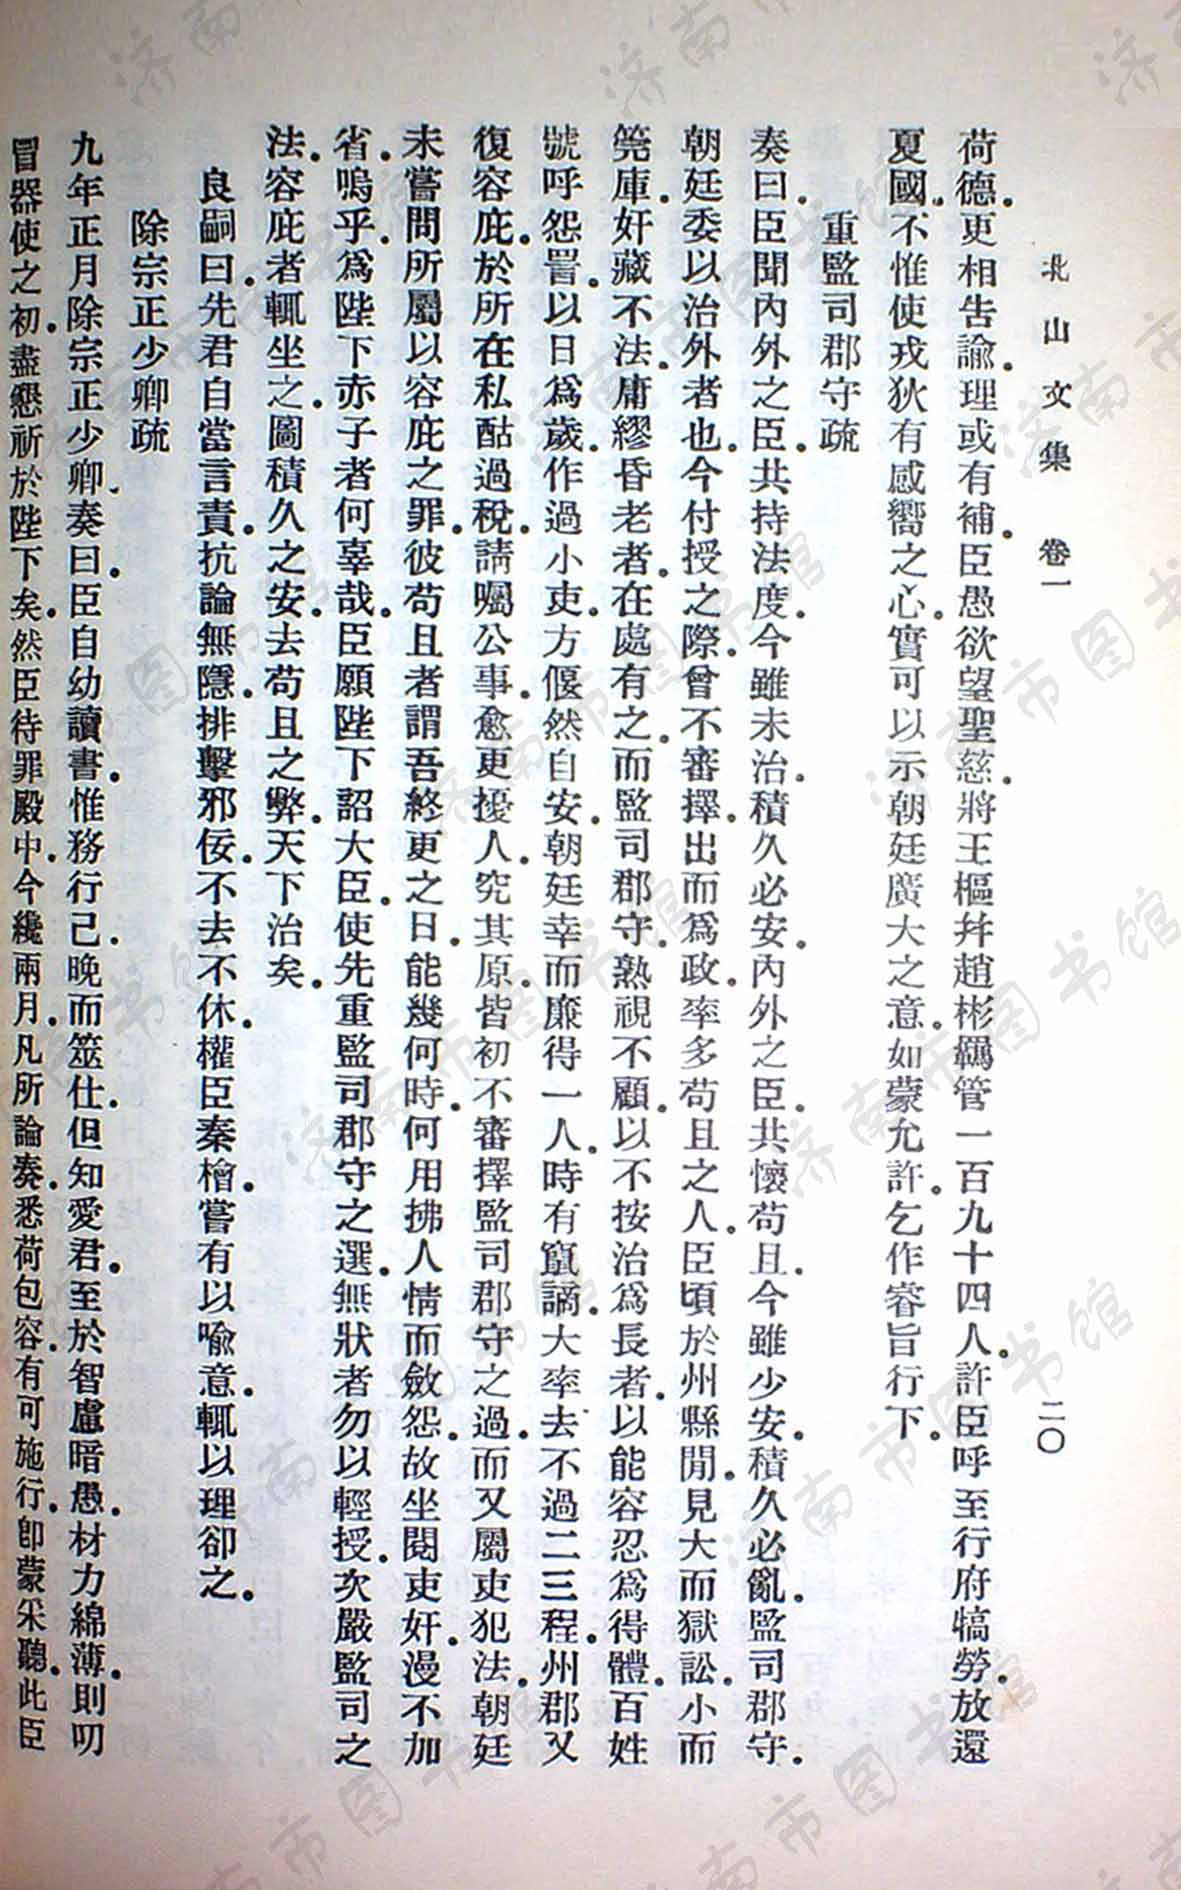 北山文集 卷一 二〇
荷德。更相告諭。理或有補。臣愚欲望聖慈。將王樞幷趙彬羈管一百九十四人。許臣呼至行府犒勞。放還
夏國。不惟使戎狄有感嚮之心。實可以示朝廷廣大之意。如蒙允許。乞作睿旨行下。
重監司郡守疏
奏曰。臣聞內外之臣。共持法度。今雖未治。積久必安。內外之臣。共懷苟且。今雖少安。積久必亂。監司郡守。
朝廷委以治外者也。今付授之際。曾不審擇。出而爲政。率多苟且之人。臣頃於州縣閒。見大而獄訟。小而
筦庫。奸藏不法。庸繆昏老者。在處有之。而監司郡守。熟視不顧。以不按治爲長者。以能容忍爲得體。百姓
號呼怨詈。以日爲歲。作過小吏。方偃然自安。朝廷幸而廉得一人。時有竄謫。大率去不過二三程。州郡又
復容庇。於所在私酤過稅。請囑公事。愈更擾人。究其原。皆初不審擇監司郡守之過。而又屬吏犯法。朝廷
未嘗問所屬以容庇之罪。彼苟且者。謂吾終更之日。能幾何時。何用拂人情而斂怨。故坐閱吏奸。漫不加
省。嗚乎。爲陛下赤子者何辜哉。臣願陛下詔大臣。使先重監司郡守之選。無狀者勿以輕授。次嚴監司之
法。容庇者輒坐之。圖積久之安。去苟且之弊。天下治矣。
良嗣曰。先君自當言責。抗論無隱。排擊邪佞。不去不休。權臣秦檜。嘗有以喻意。輒以理卻之。
除宗正少卿疏
九年正月。除宗正少卿。奏曰。臣自幼讀書。惟務行己。晚而筮仕。但知愛君。至於智慮暗愚。材力綿薄。則叨
冒器使之初。盡懇祈於陛下矣。然臣待罪殿中。今纔兩月。凡所論奏。悉荷包容。有可施行。卽蒙采聽。此臣